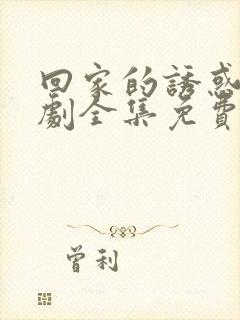 回家的誘惑
劇全集免費
曾利